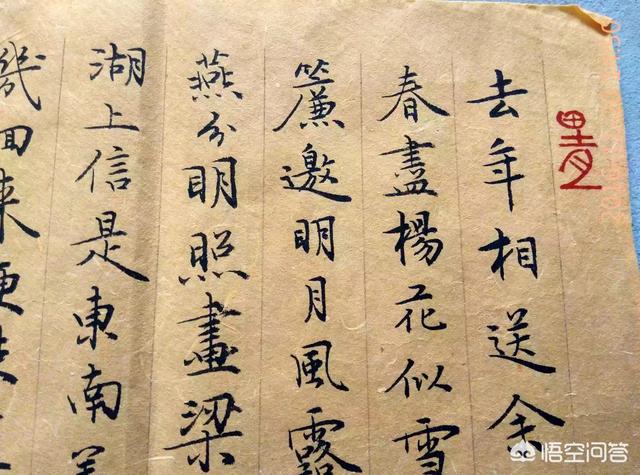 去年相送余
春盡楊花似雪
簾邀明月風露
燕分明照畫梁
湖上信是東南美
幾回来
悟空问答